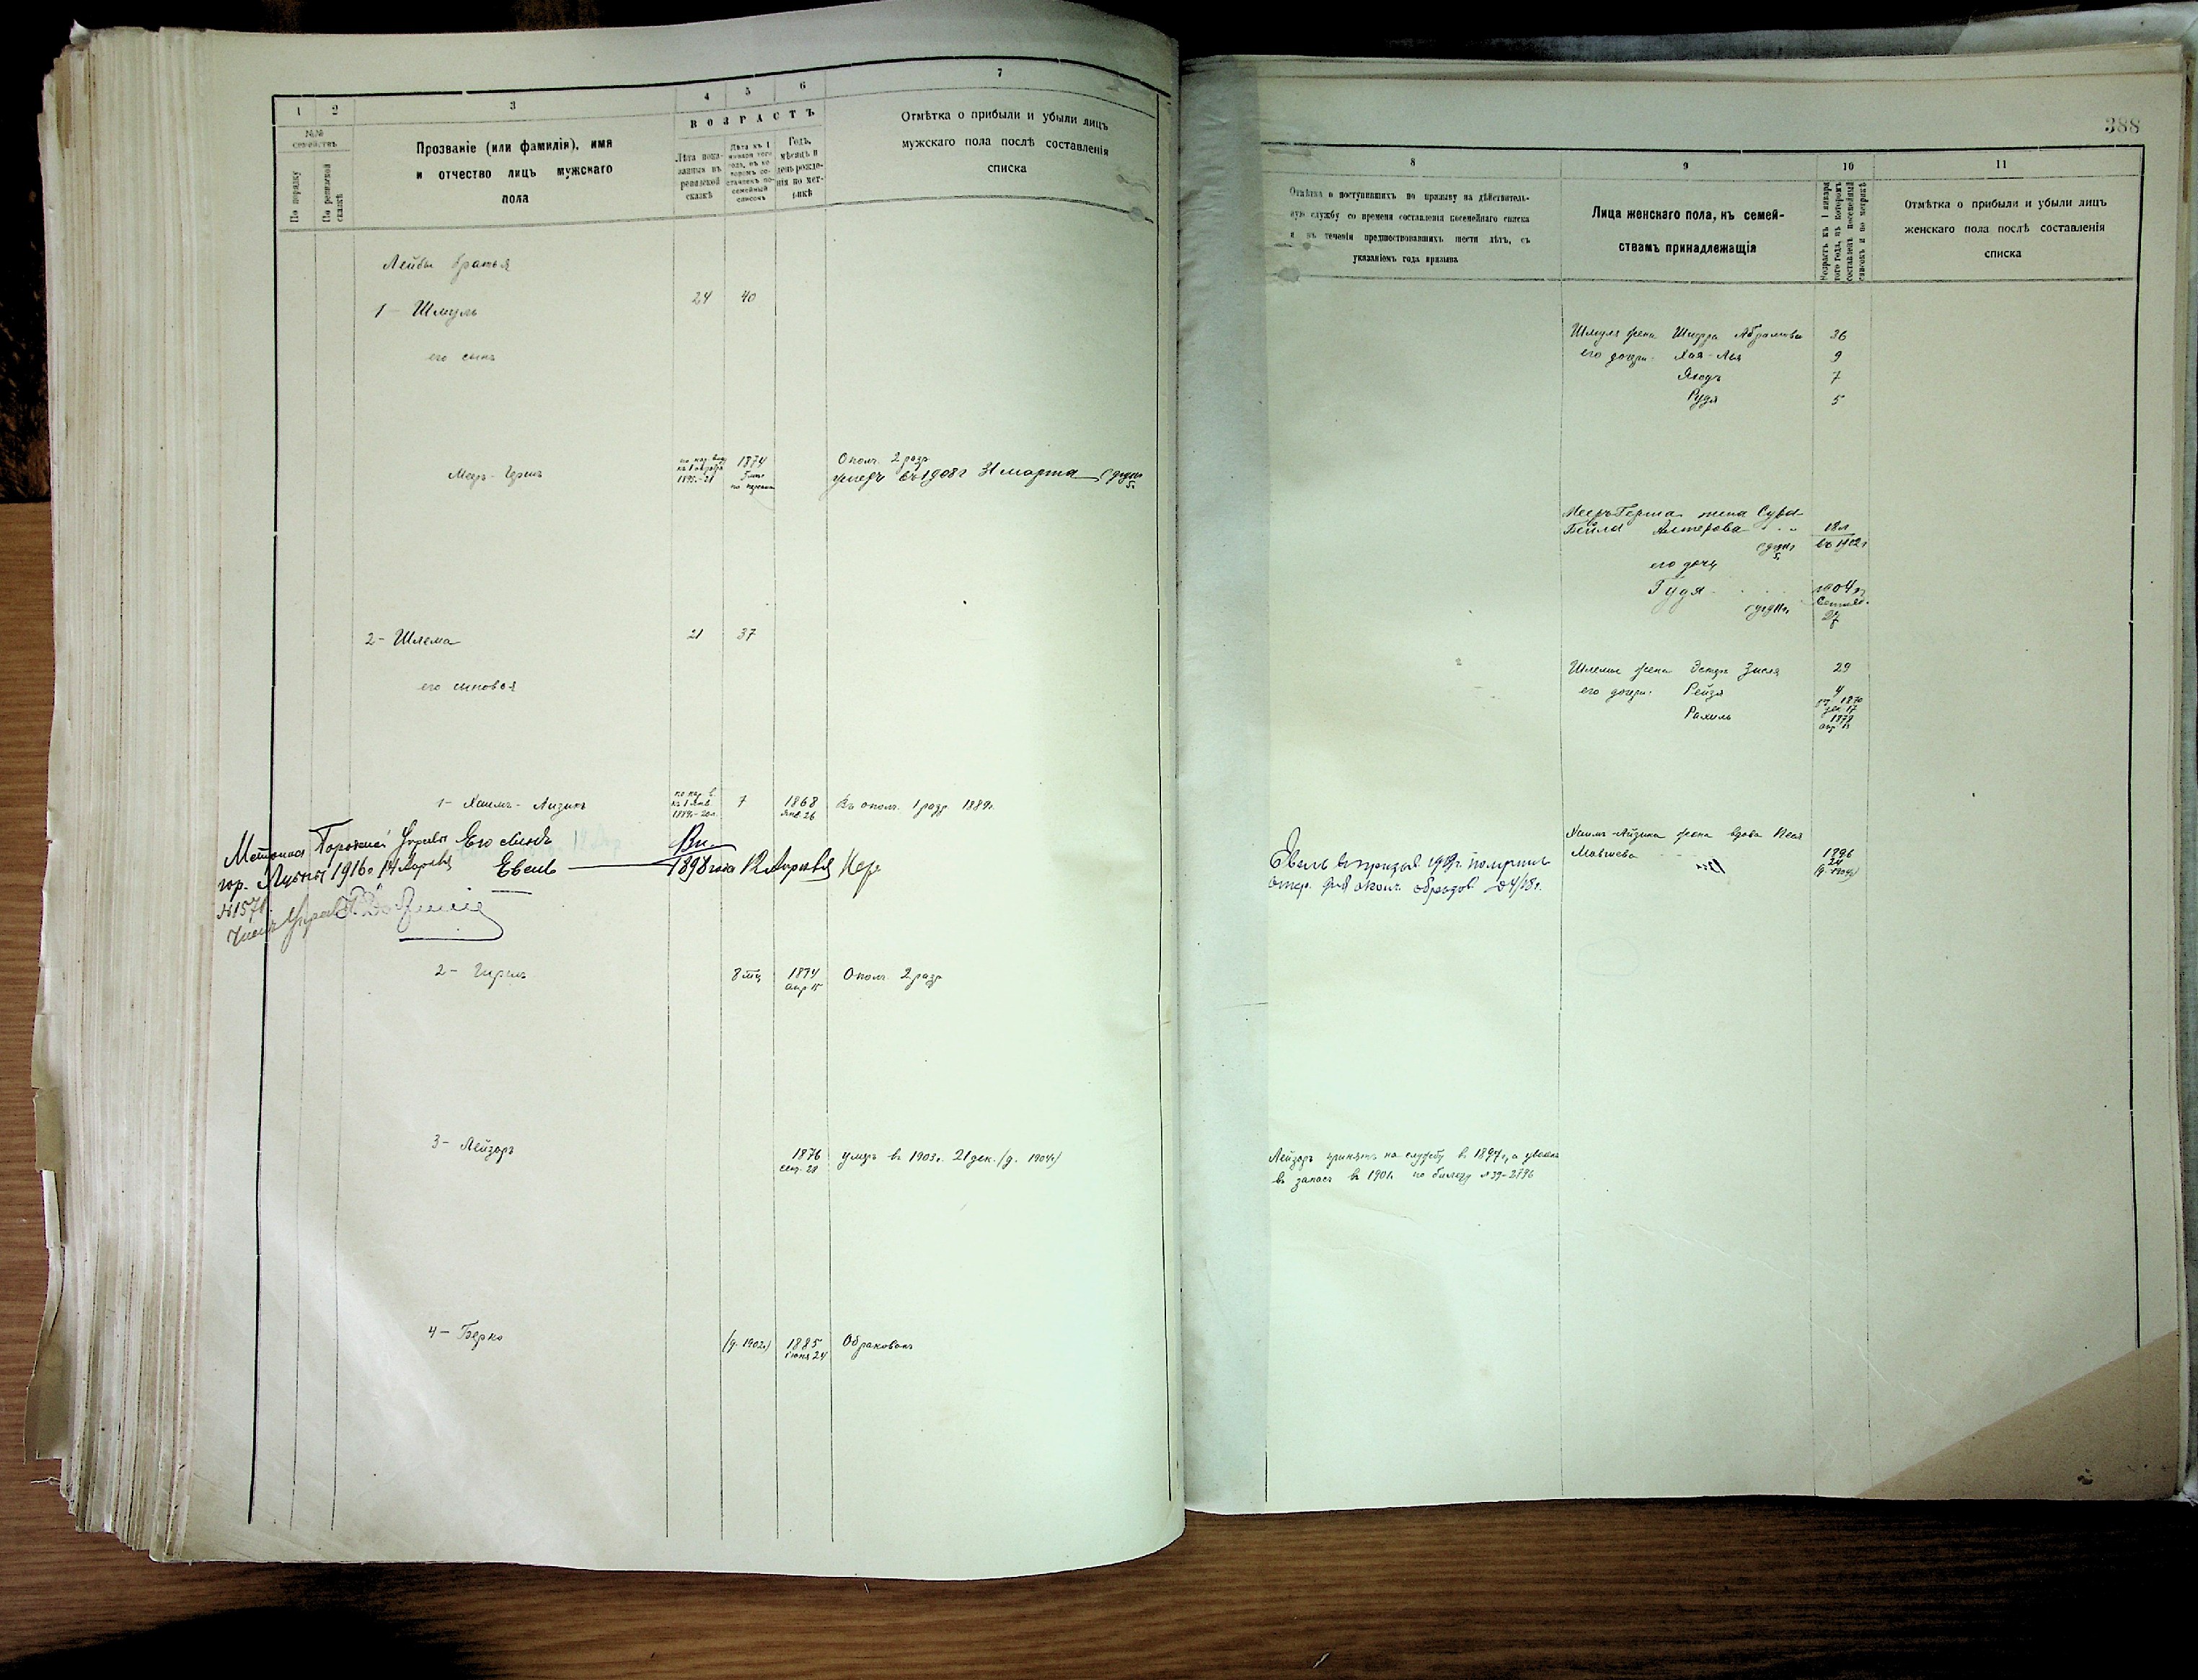 1 2 3 4 5 6 7
№№ семействъ
По порядку
По ревизской сказкѣ
Прозваніе (или фамилія), имя
и отчество лицъ мужскаго
пола
ВОЗРАСТЪ
Лѣта пока-
занныя въ
ревизской
сказкѣ
Лѣта къ 1
января того
года, въ ко-
торомъ со-
ставленъ по-
семейный
списокъ
Годъ,
мѣсяцъ и
день рожде-
нія по мет-
рикѣ
Отмѣтка о прибыли и убыли лицъ
мужскаго пола послѣ составленія
списка
Лейбы братья
1 - Шмуль 24 40
его сынъ
Меер-Гершъ 1895.-21 1874 Ополч. 2 разр
умеръ въ 1908 г 31 марта
2 - Шлема 21 37
его сыновья
1 - Хаимъ-Айзикъ 7 1868 Янв. 26 Въ ополч. 1 разр 1889г.
Городской Управы Его сынъ
гор. 1916 г. 14 Евель 1898 года
№ 157
2 - Гершъ 8 мц 1874 апр 15 Ополч. 2 разр
3 - Лейзоръ 1876 сен. 28 умеръ въ 1903г. 21 дек. (д. 1904г)
4 - Берко (д. 1902г) 1885 июня 24 Обракованъ
388
8 9 10 11
Отмѣтка о поступившихъ по призыву на дѣйствитель-
ную службу со времени составленія посемейнаго списка
и въ теченіи предшествовавшихъ шести лѣтъ, съ
указаніемъ года призыва
Лица женскаго пола, къ семей-
ствамъ принадлежащія
Возрастъ къ 1 января
того года, въ которомъ
составленъ посемейный
списокъ и по метрикѣ
Отмѣтка о прибыли и убыли лицъ
женскаго пола послѣ составленія
списка
Шмуля жена Абрамова 36
его дочери: Хая-Лея 9
7
Рудя 5
Мееръ Герша жена Сура
Бейла Алтерова 18 л
въ 1902 г
его дочь
Гудя 1904 г
Шлемы жена Эстер Зисля 29
его дочери: Рейзя 4
1870 дек 17
Рахиль 1878 апр
Хаимъ-Айзика жена вдова Песя
1896
Евель
Лейзоръ принятъ на службу въ 1897г., а уволенъ
въ запасъ въ 1901г. по билету № 39-2796